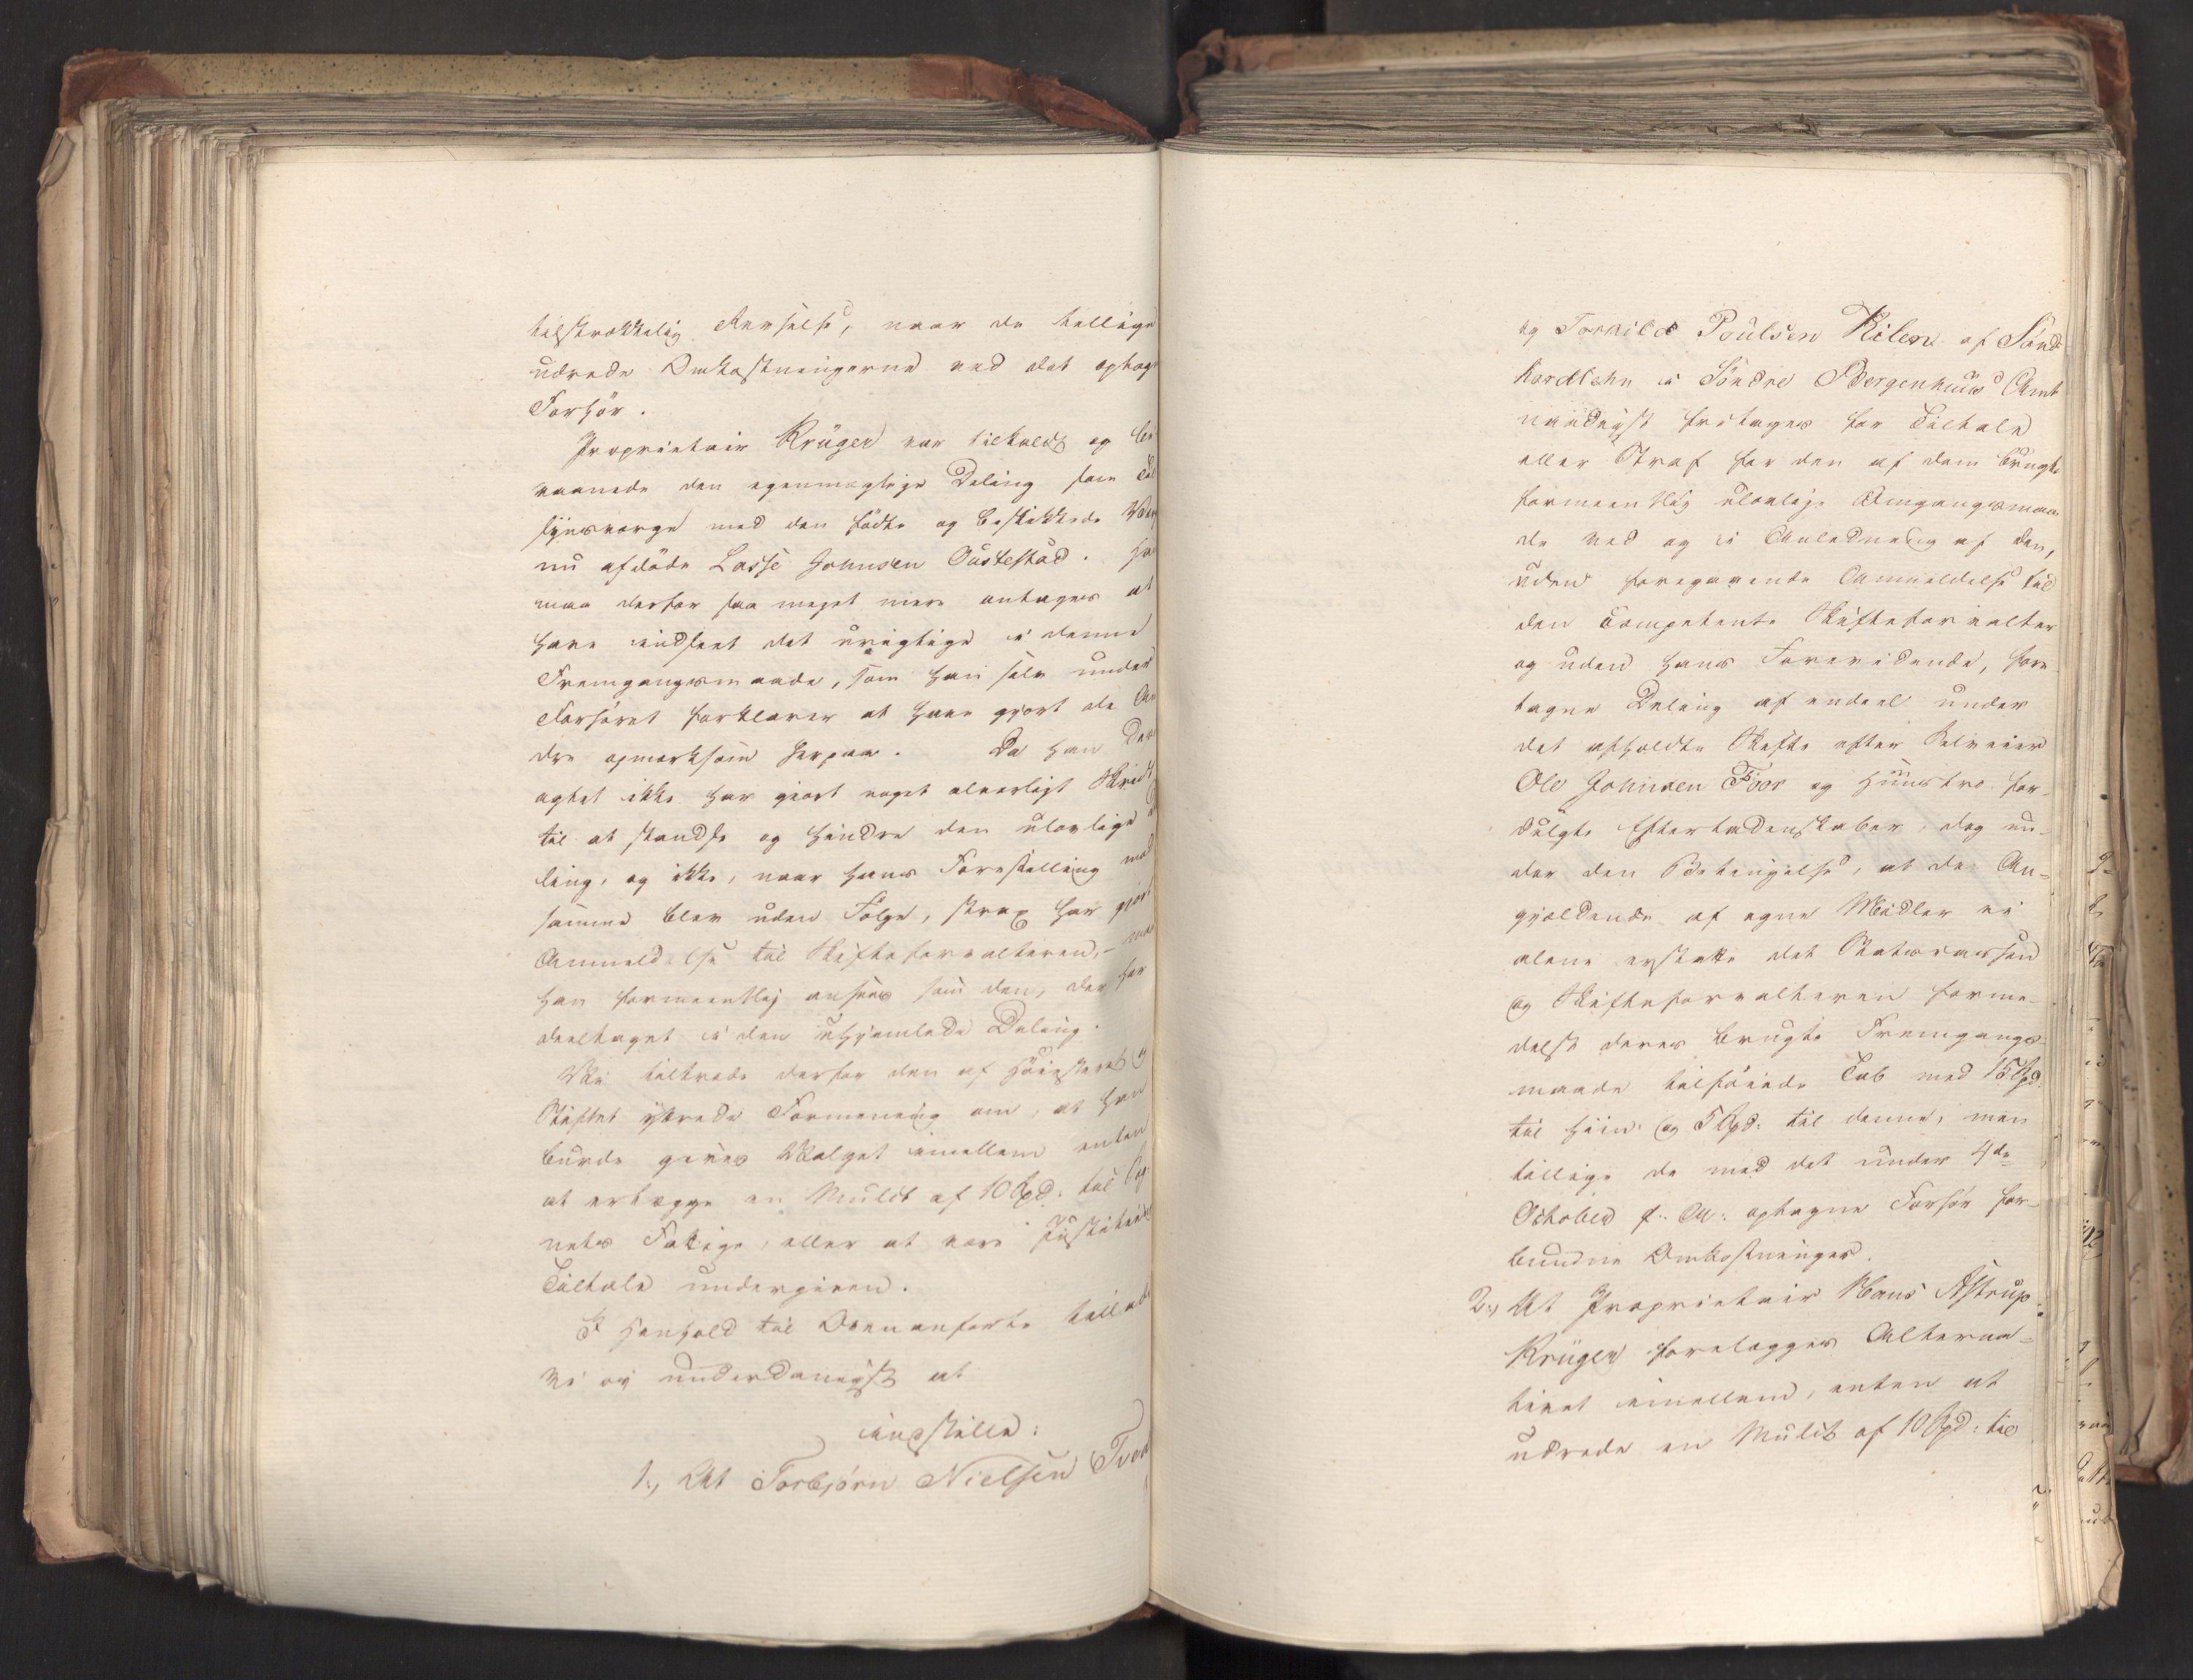 tilstrækkelig Revselse, naar de tillige
udrede Omkostningerne ved det optagne
Forhör.
Proprietair Krüger var tilkaldt og bi
vaanede den egenmægtige Deling som Til
synsværge med den födte og beskikkede Værge
nu afdöde Lasse Johnsen Oustestad. Han
maa derfor saa meget mere antages at
have indseet det urigtige i denne
Fremgangsmaade, som han selv under
Forhöret forklarer at have gjort de An
dre opmærksom herpaa. Da han des
agtet ikke har gjort noget alvorligt Skridt
til at standse og hindre den ulovlige
ling, og ikke, naar hans Forestilling mod
samme blev uden Fölge, strax har gjort
Anmeldelse til Skifteforvalteren, - maa
han formeentlig ansees som den, der har
deeltaget i den uhjemlede Deling.
Vi tiltræde derfor den af Höiesteret og
Stiftet yttrede Formening om, at han
burde gives Valget imellem enten
at erlægge en Mulct af 10 Spd: til Sog
nets Fattige, eller at være Justitiens
Tiltale undergiven.
I Henhold til Ovenanförte tillade
vi os underdanigst at
indstille:
1., At Torbjörn Nielsen Tved
og Torkild Poulsen Kilen af Sönd
hordlehn i Söndre Bergenhuus Amt
naadigst fritages for Tiltale
eller Straf for den af dem brugte
formeentlig ulovlige Omgangsmaa
de ved og i Anledning af den,
uden foregaaende Anmeldelse til
den competente Skifteforvalter
og uden hans Forevidende, fore
tagne Deling af endeel under
det afholdte Skifte efter Selveier
Ole Johnsen Töer og Huustro for-
dulgte Efterladenskaber, dog un-
der den Betingelse, at de An-
gjældende af egne Midler ei
alene erstatte det Statscassen
og Skifteforvalteren forme-
delst deres brugte Fremgangs
maade tilföiede Tab med 15 Spd.
til hiin og 5 Spd: til denne, men
tillige de med det under 4de
October f: A: optagne Forhör for-
bundne Omkostninger.
2., At Proprietair Hans Astrup
Krüger forelægges Alterna-
tivet imellem, enten at
udrede en Mulct af 10 Spd: til